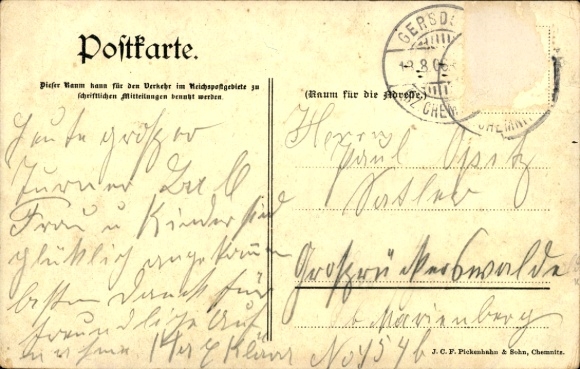 Postkarte.
Dieser Raum kann für den Verkehr im Reichspostgebiete zu
schriftlichen Mitteilungen benutzt werden.
(Raum für die Adresse.)
GERSDO
8.06
BZ. CHEM
CHEMNI
Heute grosser
Turner
Frau u Kinder sind
glücklich angekommen
besten Dank für
freundliche Auf
nahme Klara
Herrn
Paul Opitz
Sattler
Grosrückerswalde
b Marienberg
No 154 b
J. C. F. Pickenhahn & Sohn, Chemnitz.